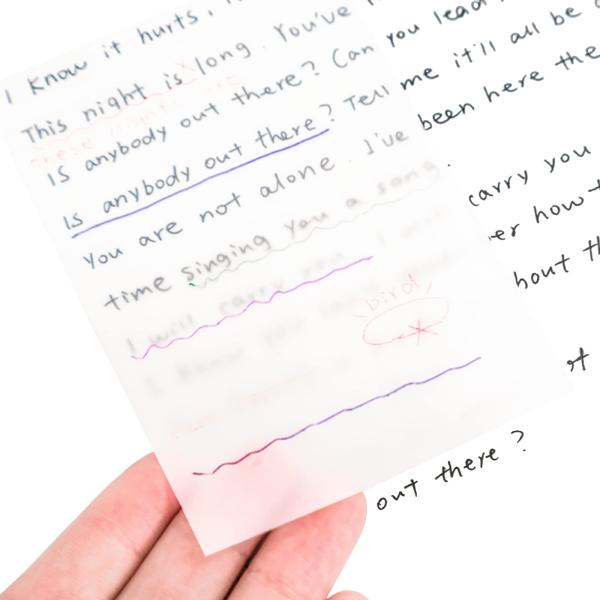 I know it hurts,
This night is long. You've
These nights are
Is anybody out there? Can you lead
Is anybody out there? Tell me it'll all be
You are not alone. I've been here the
time singing you a song.
I will carry you. I will carry you
er how t
bird
bout th
out there?